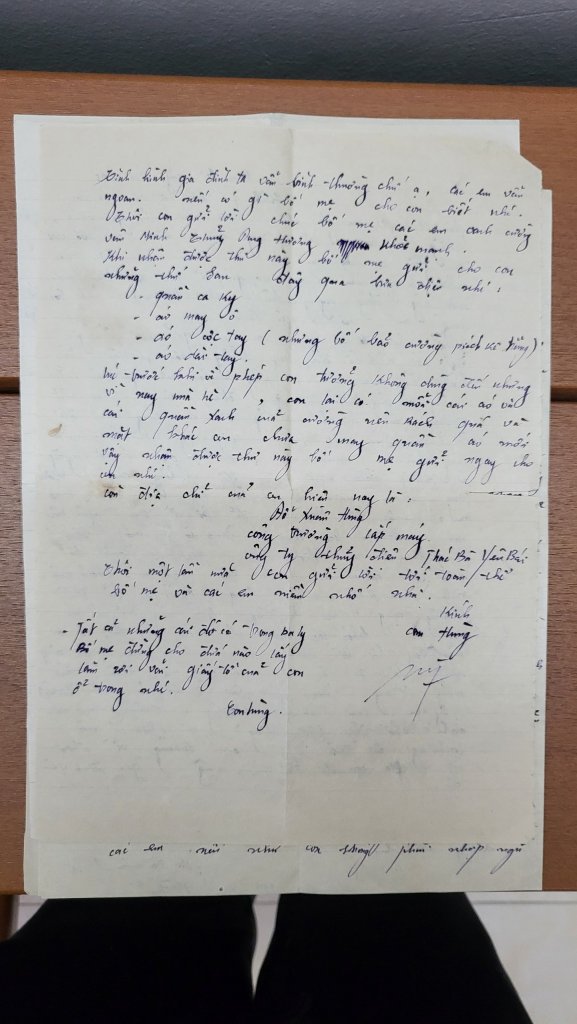 Tình hình gia đình ta vẫn bình thường chứ ạ, các em vẫn
ngoan. nếu có gì bố mẹ cho con biết nhé.
Thôi con gửi lời chúc bố mẹ các em Oanh cường
vân Minh Trung Dung Hương khoẻ mạnh.
Khi nhận được thư này bố mẹ gửi cho con
những thứ sau đây qua bưu điện nhé:
- quần ca ky
- áo may ô
- áo cộc tay (nhưng bố bảo cường
- áo dài tay.
trước khi về phép con tưởng không dùng đến nhưng
vì nay mùa hè, con lại có mỗi cái áo và
cái quần xanh của cường nên rách quá và
mặt khác con chưa may quần áo mới
vậy nhận được thư này bố mẹ gửi ngay cho
con nhé.
còn địa chỉ của con hiện nay là:
Đỗ Xuân Hùng
công trường lắp máy
công ty thuỷ điện Thác Bà Yên Bái
Thôi một lần nữa con gửi lời tới toàn thể
bố mẹ và các em niềm nhớ nhé.
Kính
con Hùng
- Tất cả những cái đó có trong ba ly
Bố mẹ đừng cho đứa nào lấy
làm rơi vãi giấy tờ của con
ở trong nhé.
Con hùng.
các em nếu như con phải nhập ngũ